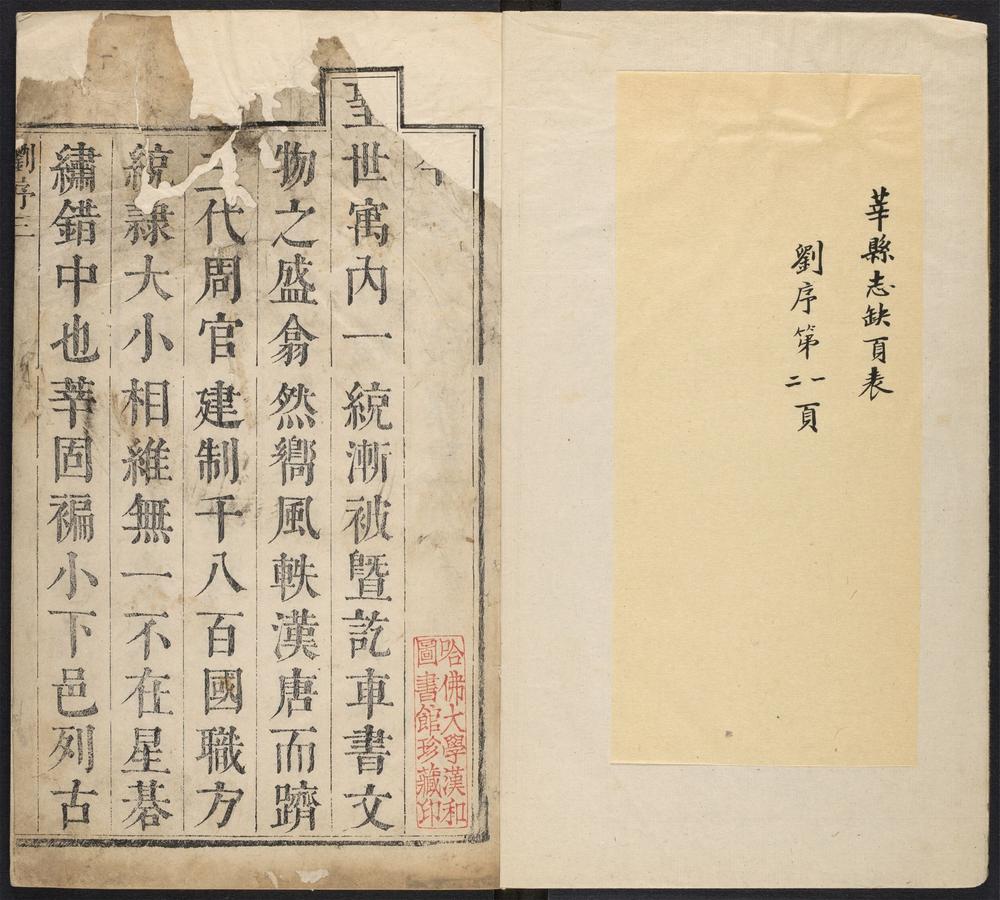 莘縣志缺頁表
劉序第一二頁
聖世寓内一統漸被曁訖車書文
物之盛翕然嚮風軼漢唐而躋
三代周官建制千八百國職方
統隷大小相維無一不在星碁
繡錯中也莘固褊小下邑列古
劉序三
哈佛大學漢和
圖書館珍藏印